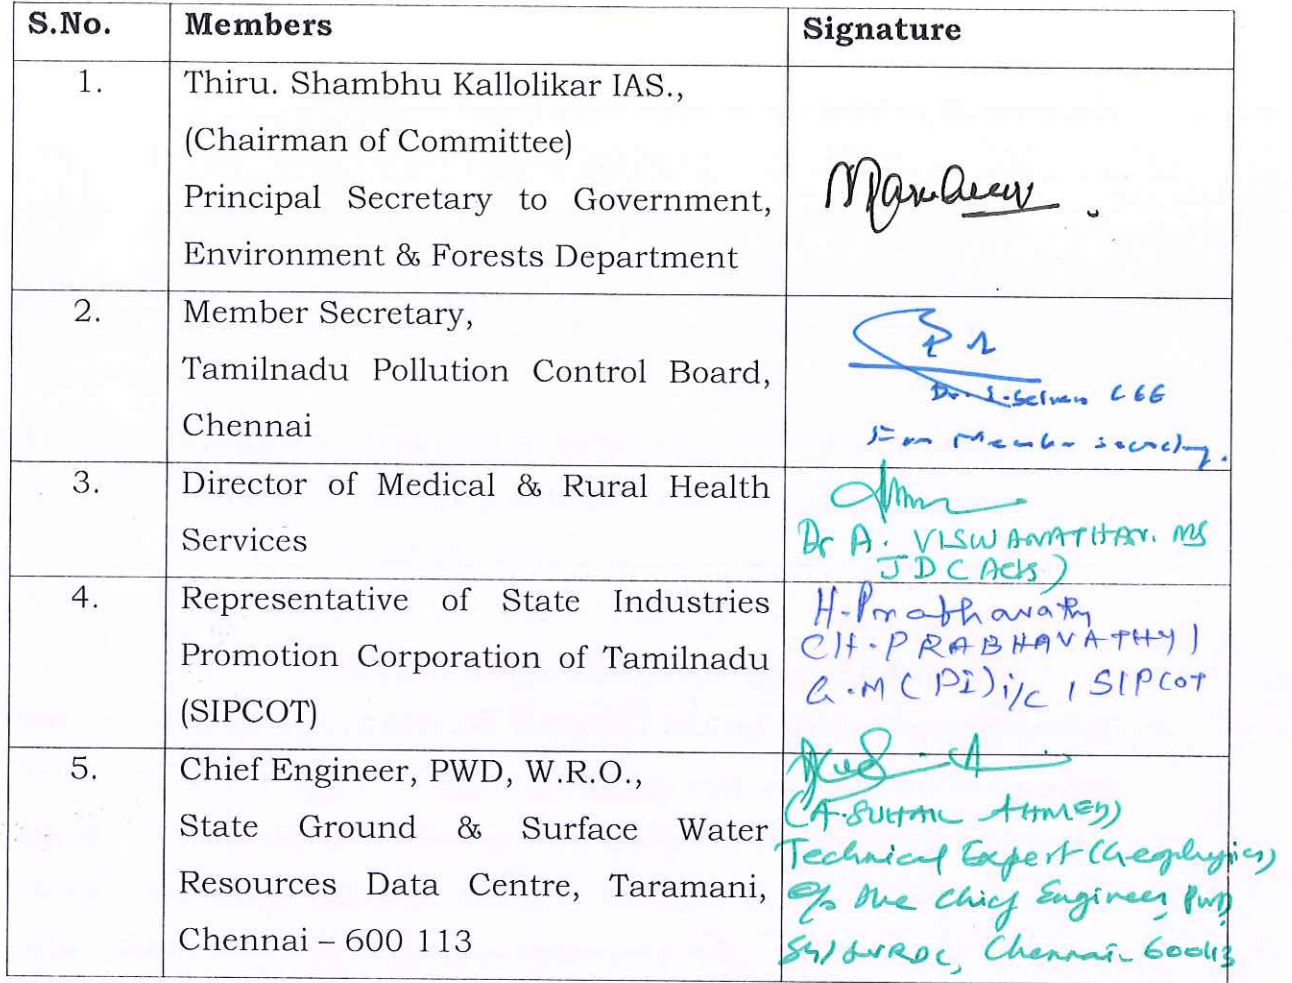 S.No. Members Signature
1. Thiru. Shambhu Kallolikar IAS.,
(Chairman of Committee)
Principal Secretary to Government,
Environment & Forests Department
2. Member Secretary,
Tamilnadu Pollution Control Board,
Chennai
Dr. S. Selvan CEE
For Member Secretary.
3. Director of Medical & Rural Health
Services
Dr A. VISWANATHAN. MS
JDC Acts)
4. Representative of State Industries
Promotion Corporation of Tamilnadu
(SIPCOT)
H. Prabhavathy
(H. PRABHAVATHY)
G.M (PI) i/c, SIPCOT
5. Chief Engineer, PWD, W.R.O.,
State Ground & Surface Water
Resources Data Centre, Taramani,
Chennai – 600 113
(A. SUHAIL AHMED)
Technical Expert (Geophysics)
O/o the Chief Engineer, PWD
Chennai-600113